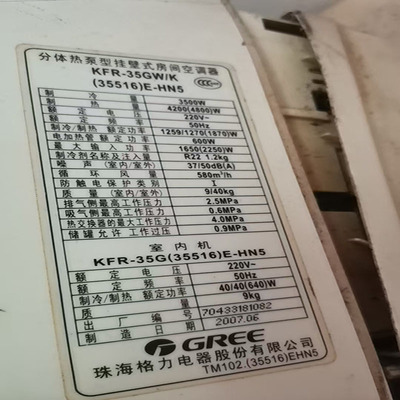 分体热泵型挂壁式房间空调器
KFR-35GW/K
(35516)E-HN5
制 冷 量 3500W
制 热 量 4200(4800)W
额 定 电 压 220V~
额 定 频 率 50Hz
制冷/制热 额定功率 1259/1270(1870)W
电加热管 额定功率 600W
最 大 输 入 功 率 1650(2250)W
制冷剂名称及注入量 R22 1.2kg
噪 声 (室内/室外) 37/50dB(A)
循 环 风 量 580m³/h
防 触 电 保 护 类 别 I
质 量 (室内/室外) 9/40kg
排气侧最高工作压力 2.5MPa
吸气侧最高工作压力 0.6MPa
热交换器的最大工作压力 4.0MPa
储 罐 允 许 工 作 过 压 0.9MPa
室 内 机
KFR-35G(35516)E-HN5
额 定 电 压 220V~
额 定 频 率 50Hz
制冷/制热 额定功率 40/40(640)W
质 量 9kg
出 厂 编 号 70433181082
制 造 日 期 2007.06
GREE
珠海格力电器股份有限公司
TM102.(35516)EHN5